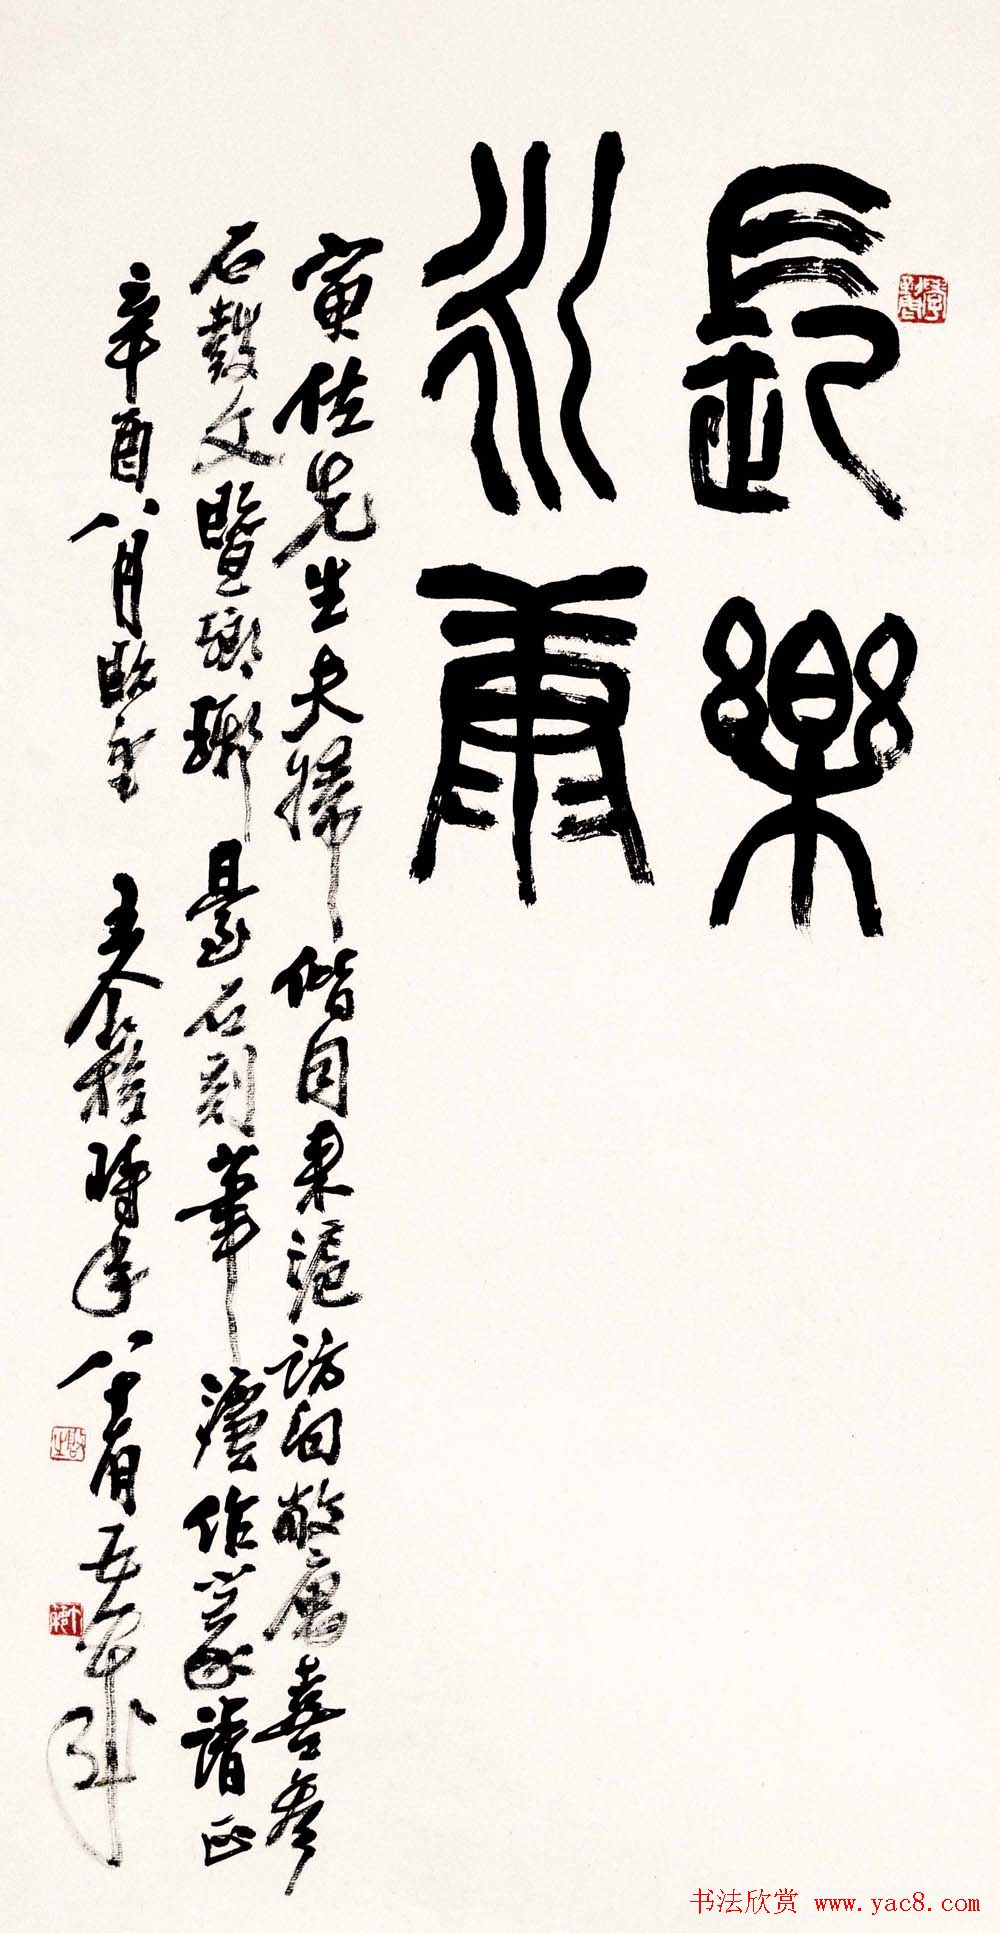 長樂
永康
寅佐先生夫婦偕同來滬訪問敝寓喜參
石鼓文暨瑯琊臺石刻筆灋作篆請正
辛酉八月 王个簃時年八十有五
书法欣赏 www.yac8.com